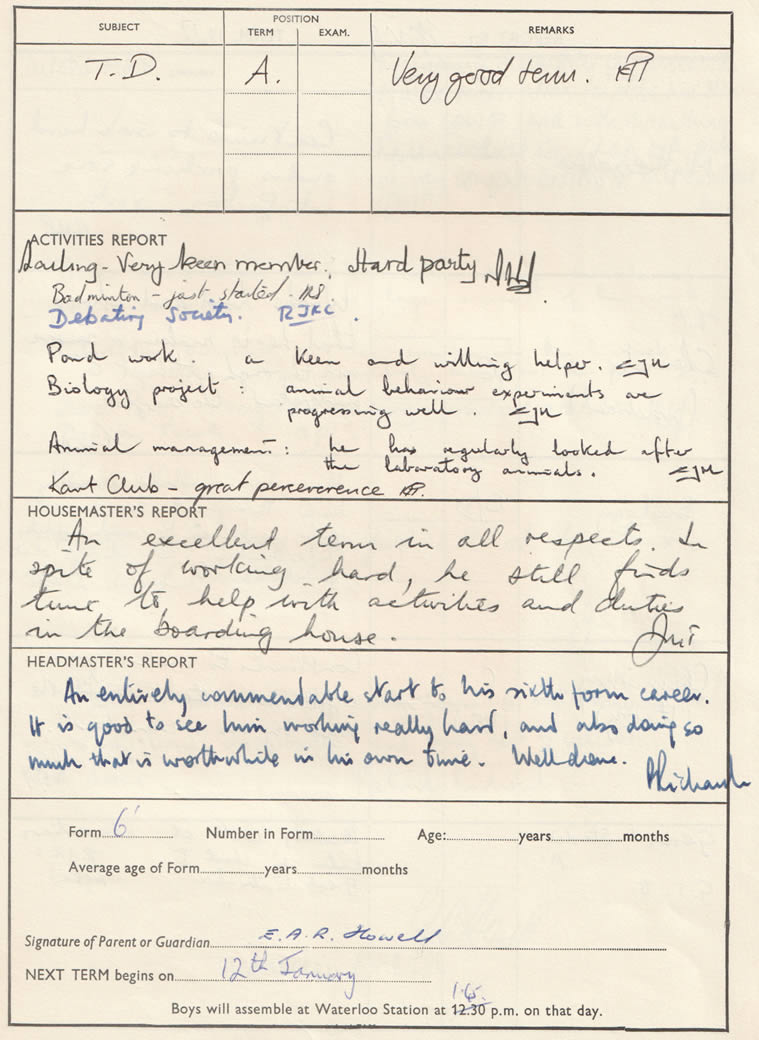 SUBJECT
POSITION
TERM EXAM.
REMARKS
T.D. A. Very good term.
ACTIVITIES REPORT
Sailing - Very keen member. Hard party
Badminton - just started.
Debating Society. RJKC.
Pond work. a keen and willing helper. EJH
Biology project: animal behaviour experiments are
progressing well. EJH
Animal management: he has regularly looked after
the laboratory animals. EJH
Kart Club - great perceverence
HOUSEMASTER'S REPORT
An excellent term in all respects. In
spite of working hard, he still finds
time to help with activities and duties
in the boarding house.
HEADMASTER'S REPORT
An entirely commendable start to his sixth form career.
It is good to see him working really hard, and also doing so
much that is worthwhile in his own time. Well done.
Form 6' Number in Form Age: years months
Average age of Form years months
Signature of Parent or Guardian E.A.R. Howell
NEXT TERM begins on 12th January
1.45
Boys will assemble at Waterloo Station at 12.30 p.m. on that day.